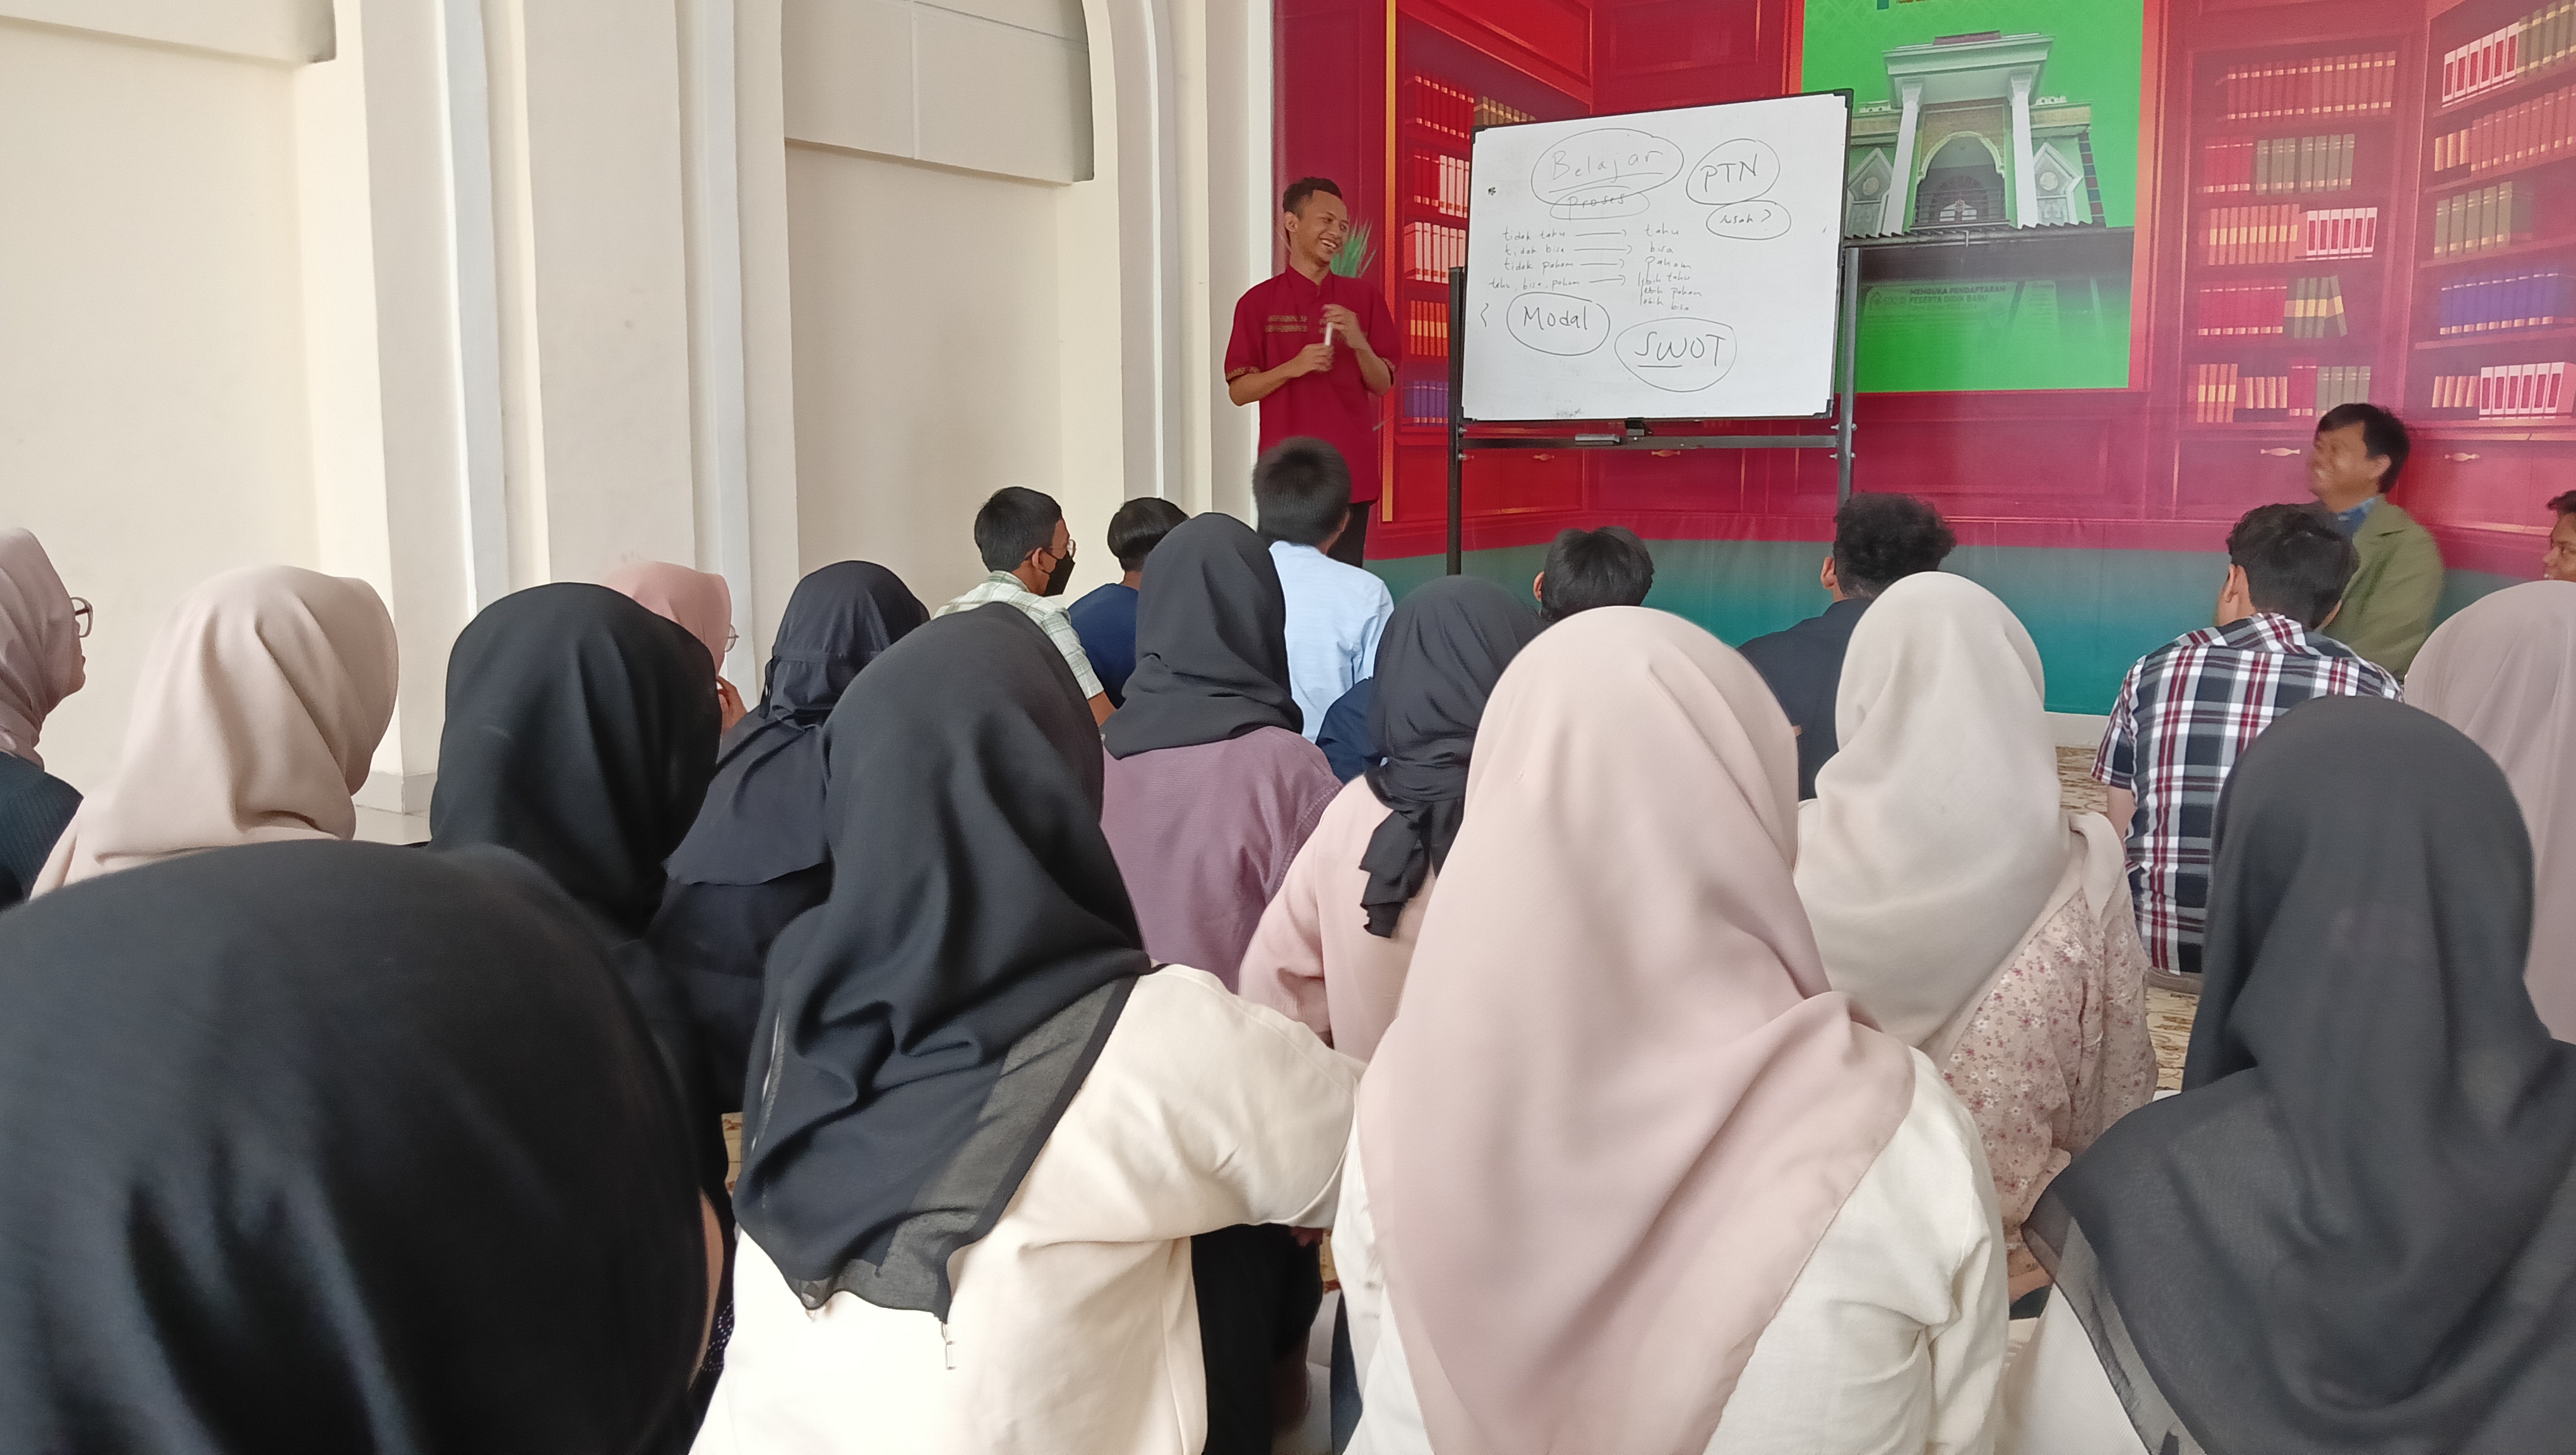 Belajar
proses
PTN
tidak tahu → tahu
tidak bisa → bisa
tidak paham → paham
tahu, bisa, paham → lebih tahu
lebih paham
lebih bisa
Modal
SWOT
MEMBUKA PENDAFTARAN
PESERTA DIDIK BARU